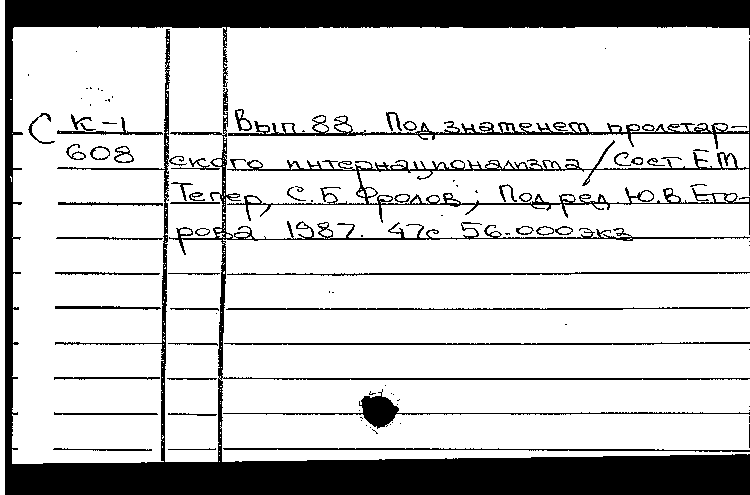 С К-1 Вып. 88 Под знаменем пролетар-
608 ского интернационализма / Сост. Е.М.
Тепер, С.Б. Фролов; Под ред. Ю.В. Его-
рова 1987. 47с 56.000 экз